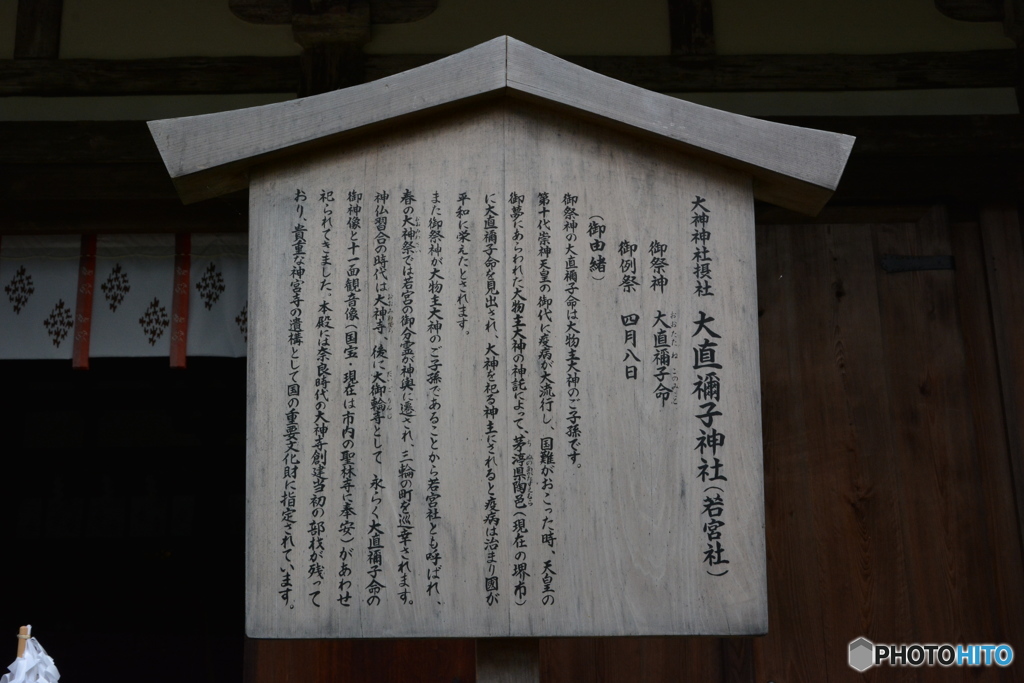 大神神社摂社 大直禰子神社（若宮社）
御祭神 大直禰子命
御例祭 四月八日
（御由緒）
御祭神の大直禰子命は大物主大神のご子孫です。
第十代崇神天皇の御代に疫病が大流行し、国難がおこった時、天皇の
御夢にあらわれた大物主大神の神託によって、茅渟県陶邑（現在の堺市）
に大直禰子命を見出され、大神を祀る神主にされると疫病は治まり国が
平和に栄えたとされます。
また御祭神が大物主大神のご子孫であることから若宮社とも呼ばれ、
春の大神祭では若宮の御分霊が神輿に遷され、三輪の町を巡幸されます。
神仏習合の時代は大神寺、後に大御輪寺として 永らく大直禰子命の
御神像と十一面観音像（国宝・現在は市内の聖林寺に奉安）があわせ
祀られてきました。本殿には奈良時代の大神寺創建当初の部材が残って
おり、貴重な神宮寺の遺構として国の重要文化財に指定されています。
PHOTOHITO